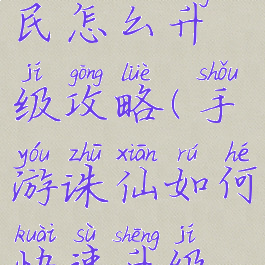 民怎么升
jí gōng lüè shǒu
级攻略(手
yóu zhū xiān rú hé
游诛仙如何
kuài sù shēng jí
快速升级